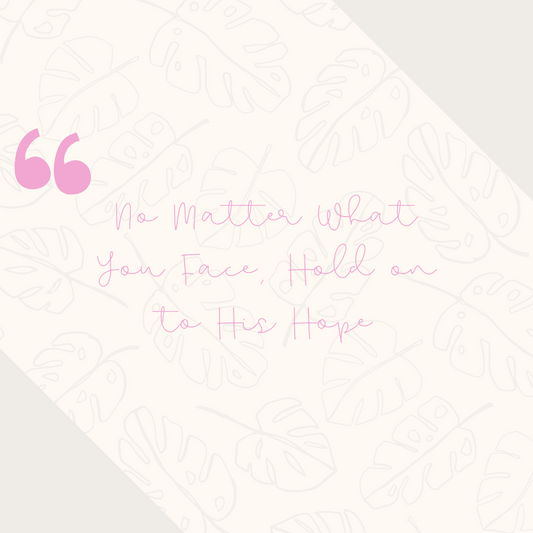 “
No Matter What
You Face, Hold on
to His Hope